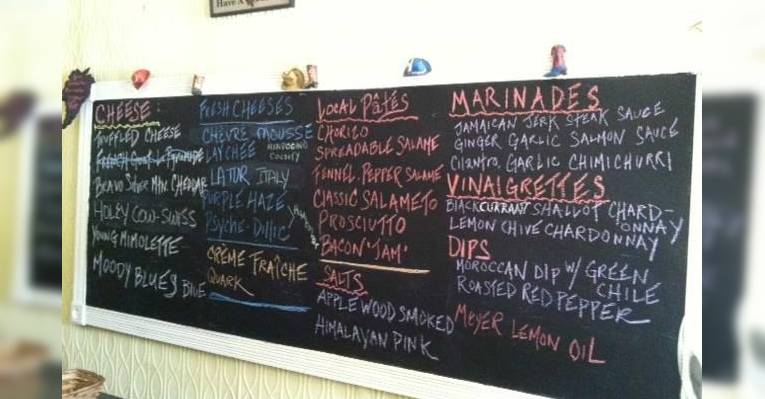 Have A
CHEESE:
TRUFFLED CHEESE
BRAVO SILVER MTN. CHEDDAR
HOLEY COW-SWISS
YOUNG MIMOLETTE
MOODY BLUES BLUE
FRESH CHEESES
CHÈVRE MOUSSE
LAYCHEE MENDOCINO COUNTY
LATUR ITALY
PURPLE HAZE
PSYCHE-DILLIC
CRÈME FRAÎCHE
QUARK
LOCAL PÂTÉS
CHORIZO
SPREADABLE SALAME
FENNEL PEPPER SALAME
CLASSIC SALAMETO
PROSCIUTTO
BACON "JAM"
SALTS
APPLE WOOD SMOKED
HIMALAYAN PINK
MARINADES
JAMAICAN JERK STEAK SAUCE
GINGER GARLIC SALMON SAUCE
CILANTRO, GARLIC CHIMICHURRI
VINAIGRETTES
BLACKCURRANT SHALLOT CHARD-
ONNAY
LEMON CHIVE CHARDONNAY
DIPS
MOROCCAN DIP W/ GREEN
CHILE
ROASTED RED PEPPER
MEYER LEMON OIL